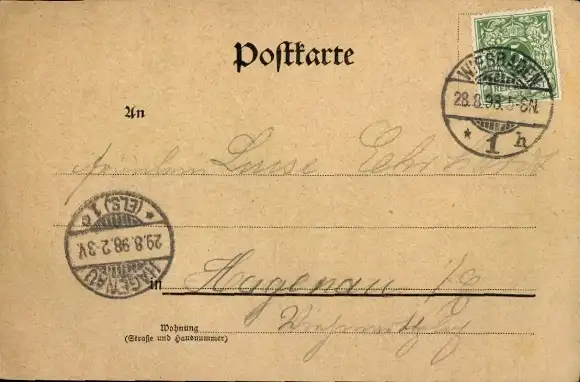 Postkarte
WIESBADEN
28.8.98. 5-6N.
* 1 h
An
Fräulein Luise
(ELS.) 1 c
29.8.98. 2-3V.
HAGENAU
in Hagenau i/E
Wohnung
(Straße und Hausnummer)